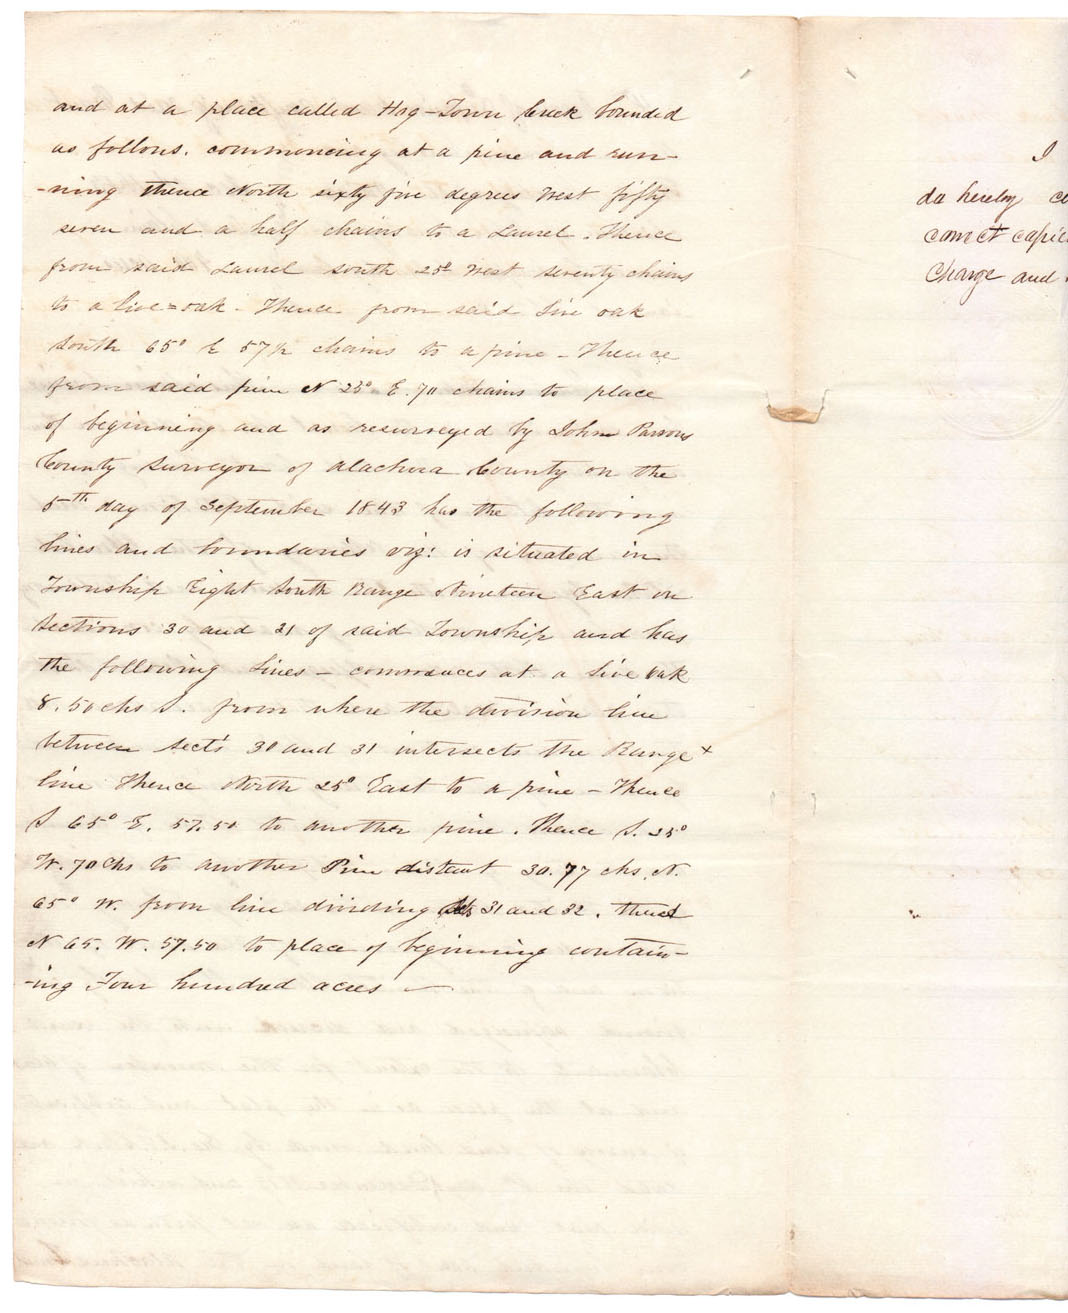 and at a place called Hog-Town Creek bounded
as follows. commencing at a pine and run-
-ning thence North sixty five degrees West fifty
seven and a half chains to a Laurel. Thence
from said Laurel south 25° West seventy chains
to a live=oak - Thence from said live oak
South 65° E 57½ chains to a pine - Thence
from said pine N 25° E. 70 chains to place
of beginning and as resurveyed by John Parsons
County Surveyor of Alachua County on the
5th day of September 1843 has the following
lines and boundaries viz: is situated in
Township Eight South Range Nineteen East on
Sections 30 and 31 of said Township and has
the following lines - commences at a live oak
8.50 chs S. from where the division line
between Sects 30 and 31 intersects the Range x
line Thence North 25° East to a pine - Thence
S 65° E. 57.50 to another pine. Thence S. 25°
W. 70 chs to another Pine distant 30.77 chs. N.
65° W. from line dividing 31 and 32. thence
N 65. W. 57.50 to place of beginning contain-
-ing Four hundred acres
I
do hereby ce
correct copies
Charge and